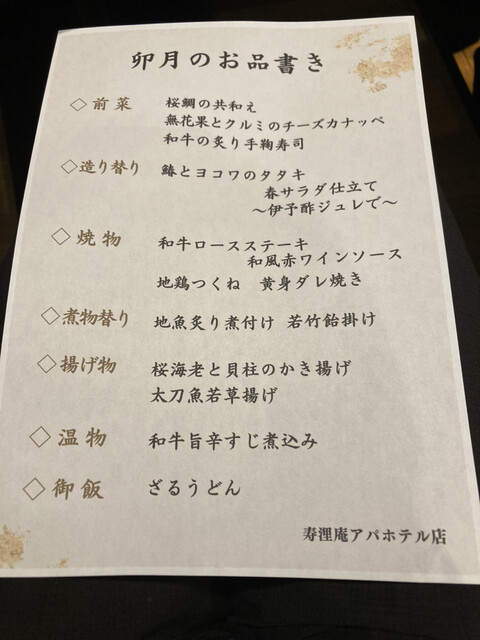 卯月のお品書き
◇前菜 桜鯛の共和え
無花果とクルミのチーズカナッペ
和牛の炙り手鞠寿司
◇造り替り 鰆とヨコワのタタキ
春サラダ仕立て
～伊予酢ジュレで～
◇焼物 和牛ロースステーキ
和風赤ワインソース
地鶏つくね 黄身ダレ焼き
◇煮物替り 地魚炙り煮付け 若竹飴掛け
◇揚げ物 桜海老と貝柱のかき揚げ
太刀魚若草揚げ
◇温物 和牛旨辛すじ煮込み
◇御飯 ざるうどん
寿浬庵アパホテル店